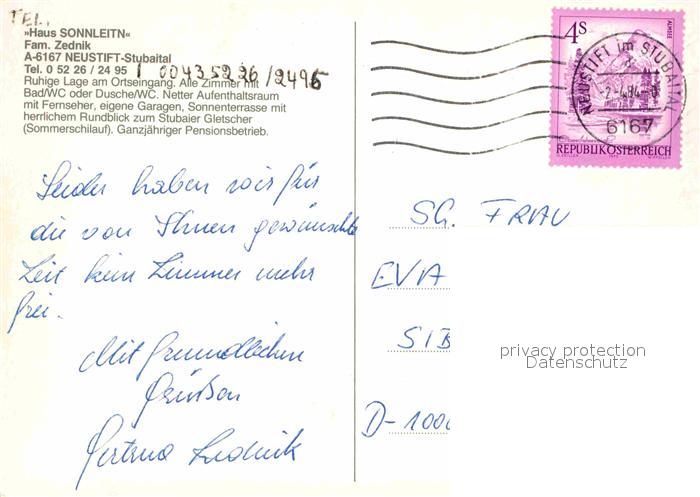 TEL.
»Haus SONNLEITN«
Fam. Zednik
A-6167 NEUSTIFT-Stubaital
Tel. 0 52 26 / 24 95 / 0043 5226/2495
Ruhige Lage am Ortseingang. Alle Zimmer mit
Bad/WC oder Dusche/WC. Netter Aufenthaltsraum
mit Fernseher, eigene Garagen, Sonnenterrasse mit
herrlichem Rundblick zum Stubaier Gletscher
(Sommerschilauf). Ganzjähriger Pensionsbetrieb.
Leider haben wir für
die von Ihnen gewünschte
Zeit kein Zimmer mehr
frei.
Mit freundlichen
Grüßen
Gertrud Zednik
4S
ALMSEE
NEUSTIFT im STUBAITAL
6167
REPUBLIK ÖSTERREICH
SG. FRAU
EVA
SIB
D-1000
privacy protection
Datenschutz